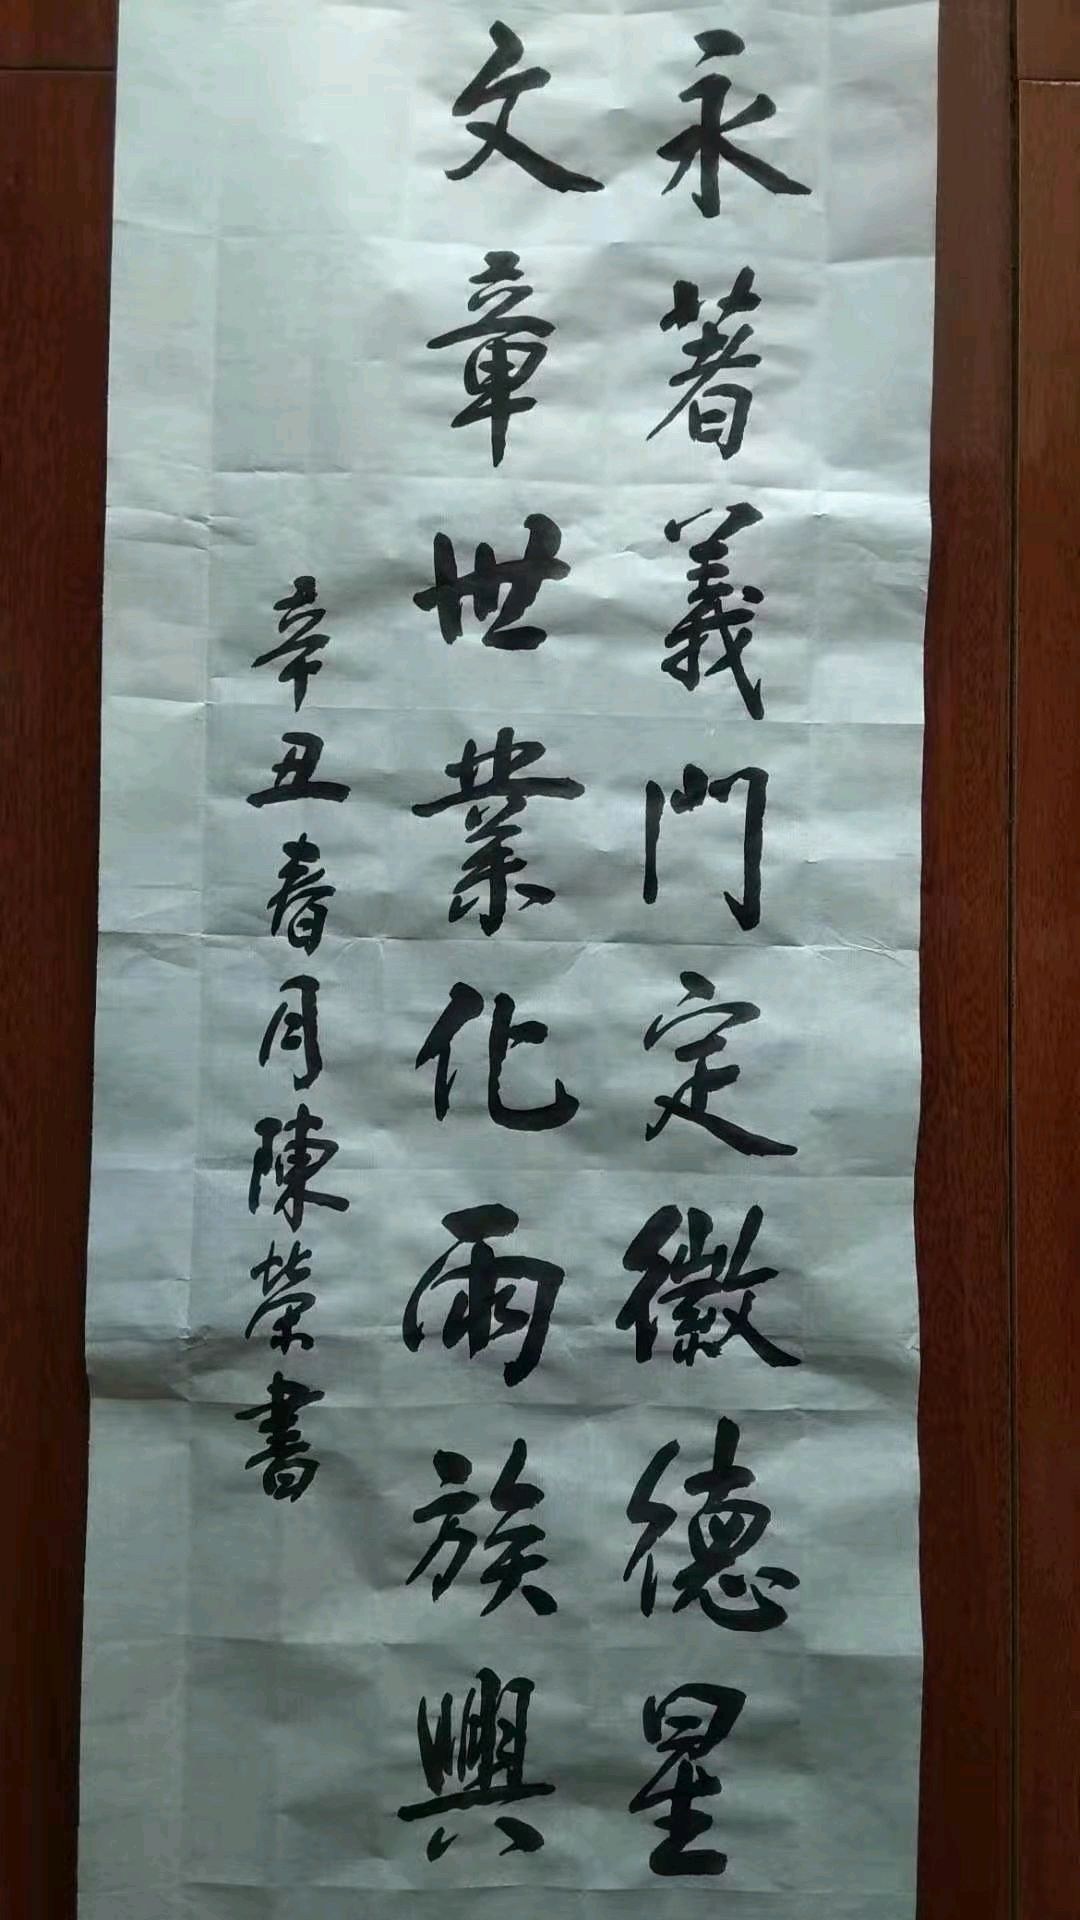 永著義門定徽德星
文章世業化雨族興
辛丑春月陳榮書